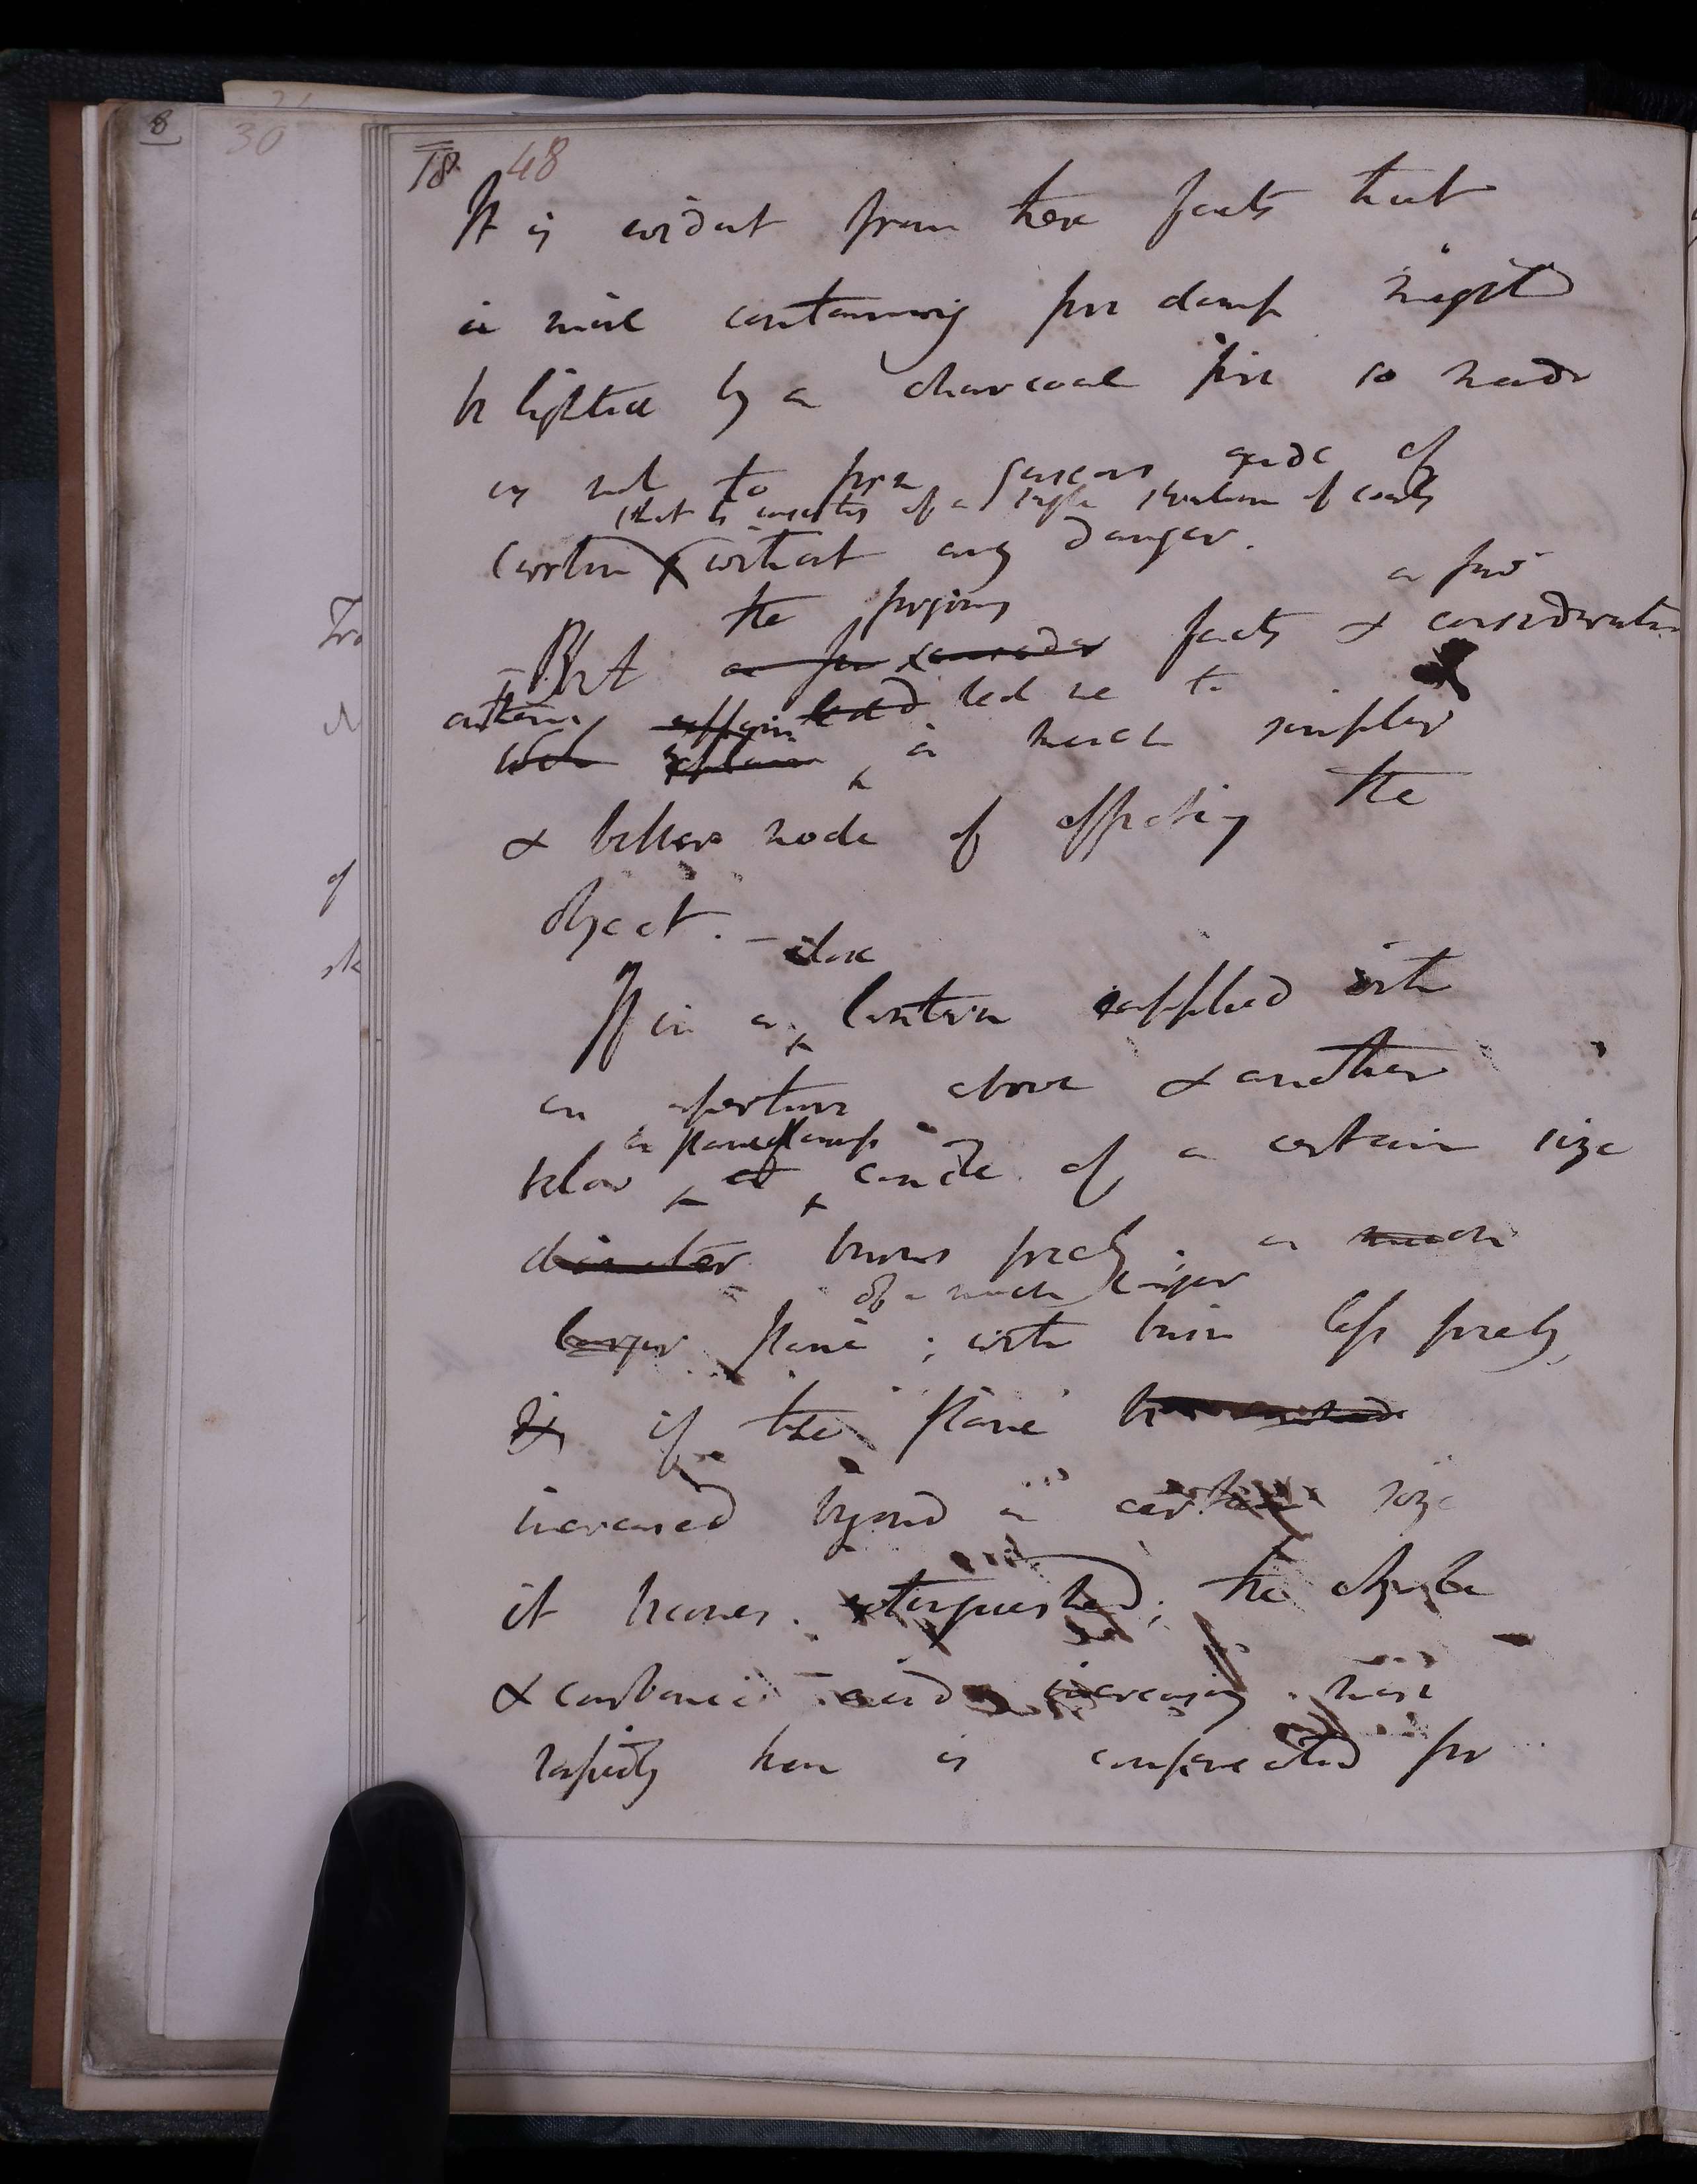 8
30
18 48
It is evident from these facts that
a mine containing fire damp might
be lighted by a charcoal fire so made
as not to form gaseous oxide of
that is consists of a single stratum of coals
Carbon without any danger.
the foregoing a few
- But a few facts & consideration
led me to
a much simpler
& better mode of effecting the
object. -
close
If in a lantern supplied with
an aperture above & another
a flame lamp or
below a candle of a certain size
diameter burns freely; a much
of a much larger
larger flame; with burn less freely,
& if the flame be
increased beyond a certain size
it becomes extinguished; the
& carbonic acid increasing more
rapidly than is for
Fro
of